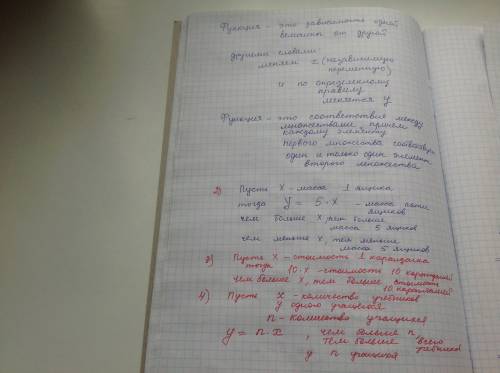 Функция - это зависимость одной
величины от другой
другими словами:
меняем x (независимую
переменную)
и по определенному
правилу
меняется y
Функция - это соответствие между
множествами причем
каждому элементу
первого множества
один и только один элемент
второго множества
2) Пусть X - масса 1 ящика
тогда y = 5 · x - масса пяти
ящиков
чем больше X, тем больше
масса 5 ящиков
чем меньше X, тем меньше
масса 5 ящиков
3) Пусть X - стоимость 1 карандаша
тогда 10 · X - стоимость 10 карандашей
чем больше X, тем больше стоимость
10 карандашей
4) Пусть X - количество учебников
у одного учащегося
n - количество учащихся
y = n · x, чем больше n,
тем больше всего
учебников
у n учащихся